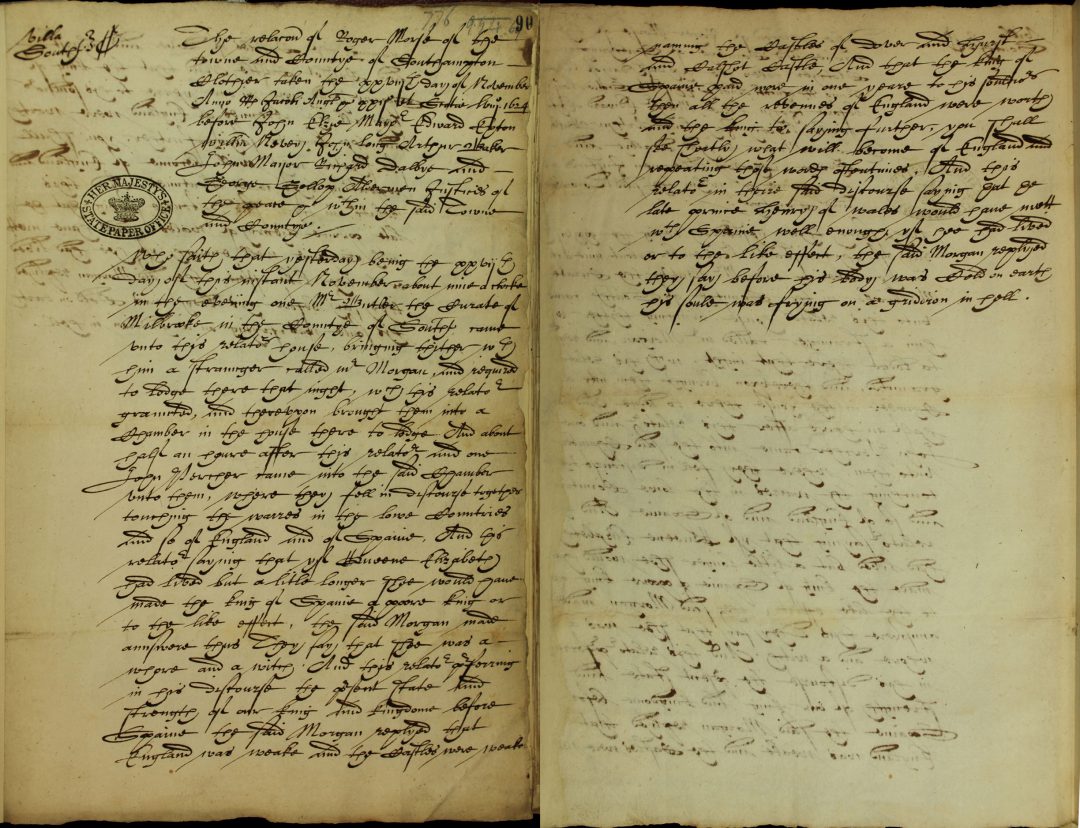 776
90
Villa
South
The relacon of Roger Morse of the
towne and Countye of Southampton
Clothier taken the xxviijth day of November
Anno Rs Jacobi Angl &c xxijo et Scotie lviijo 1624
before John Elzye Mayor Edward Exton
John Long Arthur Baker
John Major Richard Dalbye and
George Gollop Aldermen Justices of
the peace &c wthin the said Towne
and Countye
HER MAJESTY'S STATE PAPER OFFICE
Who saith that yesterday being the xxvijth
day of this instant November about nine a clocke
in the evening one Mr Butler the Curate of
Milbrooke in the Countye of South came
unto this relators house, bringing thither wth
him a straunger called mr Morgan, and required
to lodge there that night, wch this relator
graunted, and thereupon brought them into a
Chamber in the house there to lodge And about
half an houre after this relator and one
John Bercher came into the said Chamber
unto them, where they fell in discourse together
touching the warres in the lowe Countries
and so of England and of Spaine. And this
relator saying that yf Queene Elizabeth
had lived but a little longer she would have
made the king of Spanie a poore king or
to the like effect, the said Morgan made
answere thus They say that shee was a
whore and a witch. And this relator pferring
in his discourse the psent state and
strength of our king and kingdome before
Spaine the said Morgan replyed that
England was weake and the Castles were weake
naming the Castles of Dover and Hurst
and Calshot Castle, And that the king of
Spaine paid more in one yeare to his souldiers
then all the revenues of England were worth
and the king to, saying further, you shall
see shortly what will become of England and
repeating those words oftentimes, And this
relator in theire said discourse saying that the
late prince Henry of wales would have mett
wth Spaine well enough yf hee had lived
or to the like effect, the said Morgan replyed
they say before his body was Cold on earth
his soule was frying on a gridiron in hell.